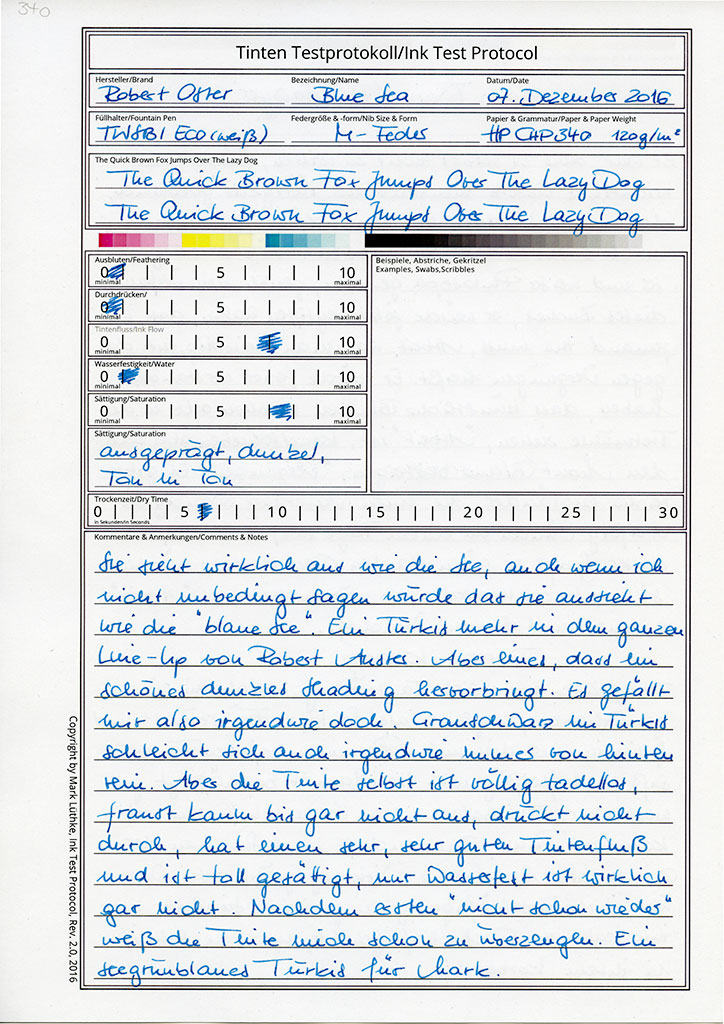 340
Tinten Testprotokoll/Ink Test Protocol
Hersteller/Brand Bezeichnung/Name Datum/Date
Robert Oster Blue Sea 07. Dezember 2016
Füllhalter/Fountain Pen Federgröße & -form/Nib Size & Form Papier & Grammatur/Paper & Paper Weight
TWSBI ECO (weiß) M-Feder HP CHP340 120g/m²
The Quick Brown Fox Jumps Over The Lazy Dog
The Quick Brown Fox Jumps Over The Lazy Dog
The Quick Brown Fox Jumps Over The Lazy Dog
Ausbluten/Feathering
0 5 10
minimal maximal
Durchdrücken/
0 5 10
minimal maximal
Tintenfluss/Ink Flow
0 5 10
minimal maximal
Wasserfestigkeit/Water
0 5 10
minimal maximal
Sättigung/Saturation
0 5 10
minimal maximal
Beispiele, Abstriche, Gekritzel
Examples, Swabs,Scribbles
Sättigung/Saturation
ausgeprägt, dunkel,
Ton in Ton
Trockenzeit/Dry Time
0 5 10 15 20 25 30
in Sekunden/in Seconds
Kommentare & Anmerkungen/Comments & Notes
Sie sieht wirklich aus wie die See, auch wenn ich
nicht unbedingt sagen würde das sie aussieht
wie die "blaue See". Ein Türkis mehr in dem ganzen
Line-Up von Robert Auster. Aber eines, dass ein
schönes dunkles Shading hervorbringt. Es gefällt
mir also irgendwie doch. Grauschwarz im Türkis
schleicht sich auch irgendwie immer von hinten
rein. Aber die Tinte selbst ist völlig tadellos,
franst kaum bis gar nicht aus, drückt nicht
durch, hat einen sehr, sehr guten Tintenfluß
und ist toll gesättigt, nur Wasserfest ist wirklich
gar nicht. Nachdem ersten "nicht schon wieder"
weiß die Tinte mich schon zu überzeugen. Ein
seegrünblaues Türkis für Mark.
Copyright by Mark Lüthke, Ink Test Protocol, Rev. 2.0, 2016